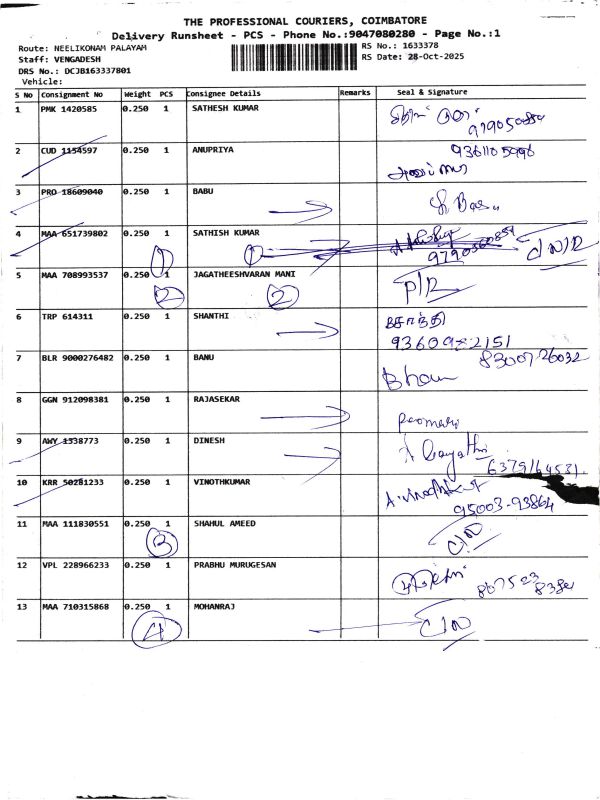 THE PROFESSIONAL COURIERS, COIMBATORE
Delivery Runsheet - PCS - Phone No.:9047080280 - Page No.:1
Route: NEELIKONAM PALAYAM
RS No.: 1633378
Staff: VENGADESH
RS Date: 28-Oct-2025
DRS No.: DCJB163337801
Vehicle:
S No Consignment No Weight PCS Consignee Details Remarks Seal & Signature
1 PMK 1420585 0.250 1 SATHESH KUMAR
2 CUD 1154597 0.250 1 ANUPRIYA
3 PRO 18609040 0.250 1 BABU
4 MAA 651739802 0.250 1 SATHISH KUMAR
1 1
5 MAA 708993537 0.250 1 JAGATHEESHVARAN MANI
2 2
6 TRP 614311 0.250 1 SHANTHI சாந்தி
9360982151
7 BLR 9000276482 0.250 1 BANU 8300726032
8 GGN 912098381 0.250 1 RAJASEKAR
9 AWY 1338773 0.250 1 DINESH A Gayathri
10 KRR 50281233 0.250 1 VINOTHKUMAR
95003-93864
11 MAA 111830551 0.250 1 SHAHUL AMEED
3
12 VPL 228966233 0.250 1 PRABHU MURUGESAN
13 MAA 710315868 0.250 1 MOHANRAJ
4